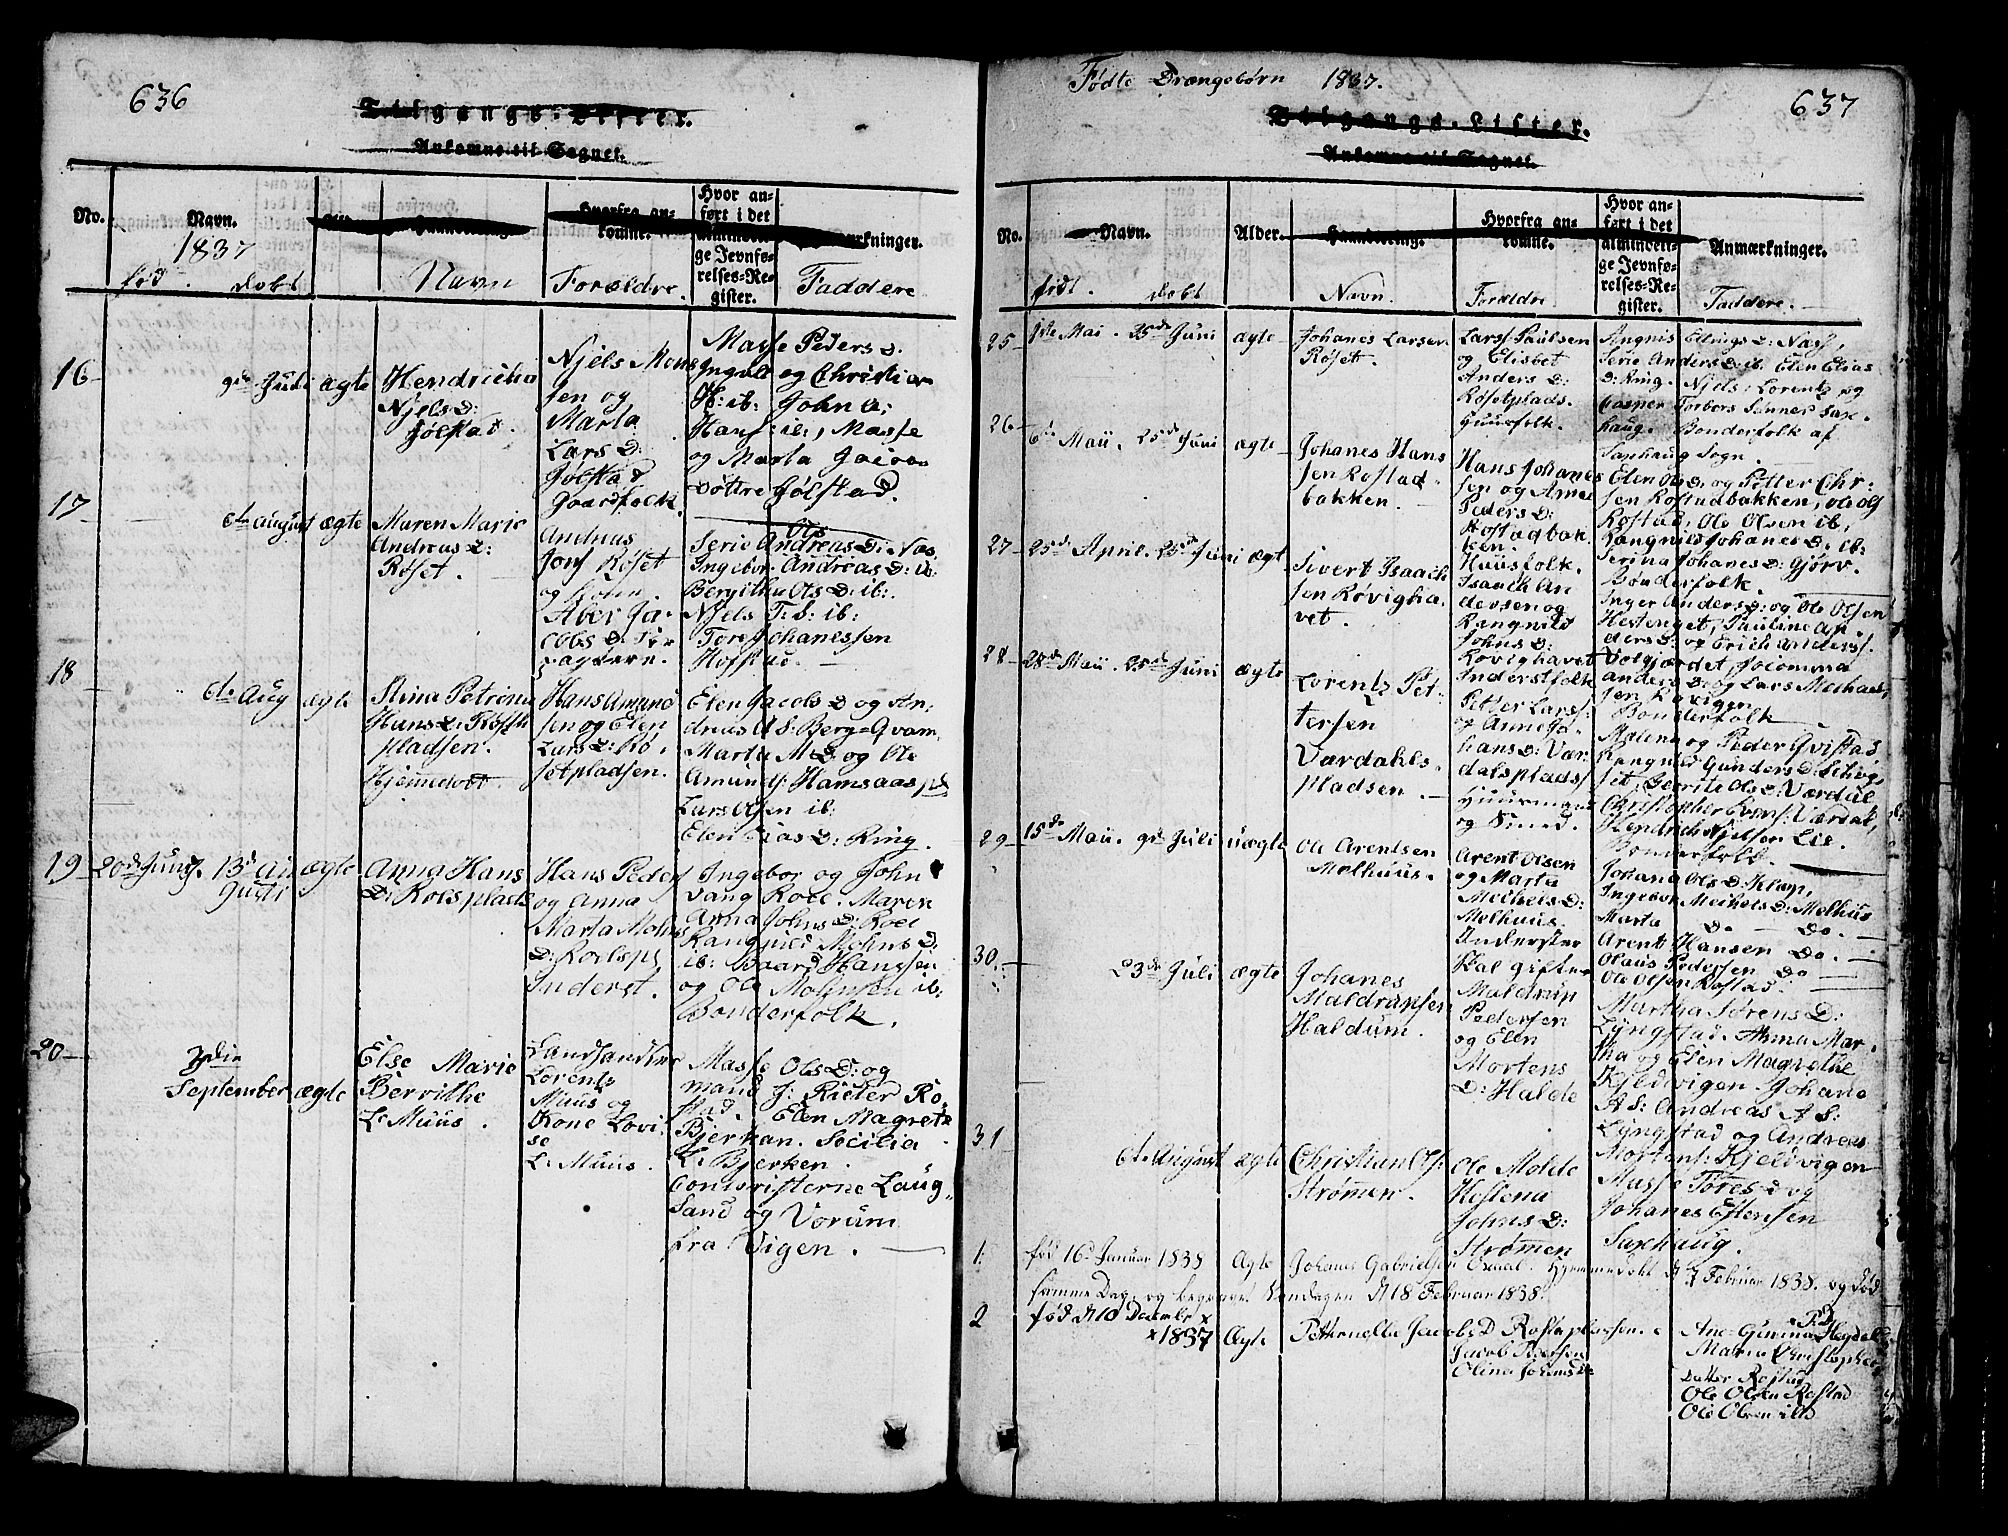 636
Tilgangs-Lister.
Ankomne til Sognet.
No.
Navn.
1837
Hvorfra an-
komne.
Hvor an-
ført i det
almindeli-
ge Jevnfø-
relses-Re-
gister.
født
Døbt
Navn
Forældre
Faddere
16
9de Juli
ægte
Hendricha
Njels D:
Jølstad.
Njels Mons
sen og
Marta
Lars D:
Jølstad
Gaardfolk.
Masse Peders D.
Ingvald og Christian
H: ib: John A:
Hans ib:, Masse
og Marta
Døttre Jølstad.
17
6te August
ægte
Maren Marie
Andreas D:
Røset.
Andreas
Jons Røset
og Kone.
Aber Ja-
cobs D:
Serie Andreas D: Næs
Ols
Ingebor. Andreas D: ib:
Bergitha Ols D: ib:
Njels T: S: ib:
Tore Johanessen
Hofstad.
18
6te Aug
ægte
Stina Petrina
Hans D: Røset
pladsen.
Hjemmedøbt
Hans Amund
sen og Elen
Lars D: Rø,
setpladsen.
Elen Jacobs D og An,
dreas A S: Berg=Qvam
Marta M D og Ole
Amunds: Hamsaas pd
Lars Olsen ib:
Elen Elias D: Ring.
19
20de Juny.
13de Au
gusti
ægte
Anna Hans
D: Rolsplads
Hans Peders
og Anna
Marta Mohns
D: Roelspl
Inderst.
Ingebor og John
vang Roel. Maren
Anna Johns D: Roel
Rangnild Mohns D:
ib: Baard Hanssen
og Ole Mohnsen ib:
Bonderfolk.
20
3die
September
ægte
Else Marie
Bervithe
L: Muus.
Landhandler
Lorentz
Muus og
Kone Lovi-
se
L: Muus.
Masse Ols D: og
mand J: Rieter Ro-
stad. Elen Magrete
Bjerkan. Secilia
L: Bjerken.
Contoristerne Laug
Sand og Vorum
fra Vigen.
Fødte Drengebørn 1837.
637
Tilgangs-Lister.
Ankomne til Sognet.
No.
Navn.
Alder.
Haandtering.
Hvorfra an-
komne.
Hvor an-
ført i det
almindeli-
ge Jevnfø-
relses-Re-
gister.
Anmærkninger.
født.
Døbt
Navn.
Forældre
Faddere.
25
1ste Mai.
25de Juni
ægte
Johanes Larsen
Røset.
Lars Paulsen
og Elisbet
Anders D:
Røsetplads.
Huusfolk.
Angnis Ellings D: Næss,
Serie Anders D: ib. Elen Elias
D: Ring. Njels: Lorentz og
Casper Torbers Sønner Sax-
haug. Bonderfolk af
Saxhaug Sogn.
26
6te Maii.
25de Juni
ægte
Johanes Hans
sen Rostad-
bakken.
Hans Johanes
sen og Anne
Peders D:
Rostadbak
ken.
Huusfolk.
Elen Ols D: og Petter Chr:
sen Rostadbakken, Ole Ols
Rostad, Ole Olsen ib,
Rangnild Johanes D: ib:
Serina Johanes D: Gjørv.
Bønderfolk.
27
25de April.
25de Juni
ægt
Sivert Isaach
sen Røvigha-
vet.
Isaach An
dersen og
Rangnild
Johns D:
Rovighavet
Inderstfolk
Inger Anders D: og Ole Olsen
Hestenget, Pauline An-
ders D: og Erich Anderss.
Volgjærdet, Jocomina
Anders D: og Lars Mechael,
sen Røvigen
Bonderfolk
28
28de Maii.
25de Juni
ægte
Lorentz Pet-
tersen
Værdahls-
pladsen.
Petter Lars:
og Anne Jo-
hans D: Vær
dalsplads
Huusmand
og Smed.
Malena og Peder Qvistad
Rangnild Gunders D:
Berite Ols D: Værdal
Christopher Evens: Værdal,
Hendrich Njelsen Lie.
Bonderfolk.
29
15de Maii.
9de Juli
uægte
Ole Arentsen
Melhuus.
Arent Olsen
og Marta
Mechels D:
Melhuus.
Inderster
skal gifter
Johana Ols D: Klæp,
Ingebor Mechels D: Melhus
Marta Do. Do.
Arent Hansen Do.
Olaus Pedersen Do
Ole Olsen Rostad.
30
23de Juli
ægte
Johanes
Maldrunsen
Haldum.
Maldrun
Pedersen
og Elen
Mortens
D: Halde
Martha Sørens D:
Lyngstad. Anna Mar-
tha og Elen Magrethe
Kjeldvigen Johane
A S: Andreas A S:
Lyngstad og Andreas
Mortens: Kjeldvigen
31
6te August
ægte
Christian Ols:
Strømen.
Ole Molde
Helena
Johns D:
Strømen
Masse Tores D og
Johanes Estensen
Saxhaug.
1.
fød 16d Januar 1838
Ægte
Johanes Gabrielsen Oxaal. Hjemmedøbt d 7 Februar 1838. og død
samme Dag. og begravet Søndagen d 18 Februar 1838.
2
fød d 10 December x
x 1837
Ægte
Petternella Jacobs D Rostapladsen.
Jacob Pedersen
Olina Johans D:
P D
Ane Gurina Heyd
Maria Christopher
Datter Rostad
Ole Olsen Rostad
Ole Olsen ibd